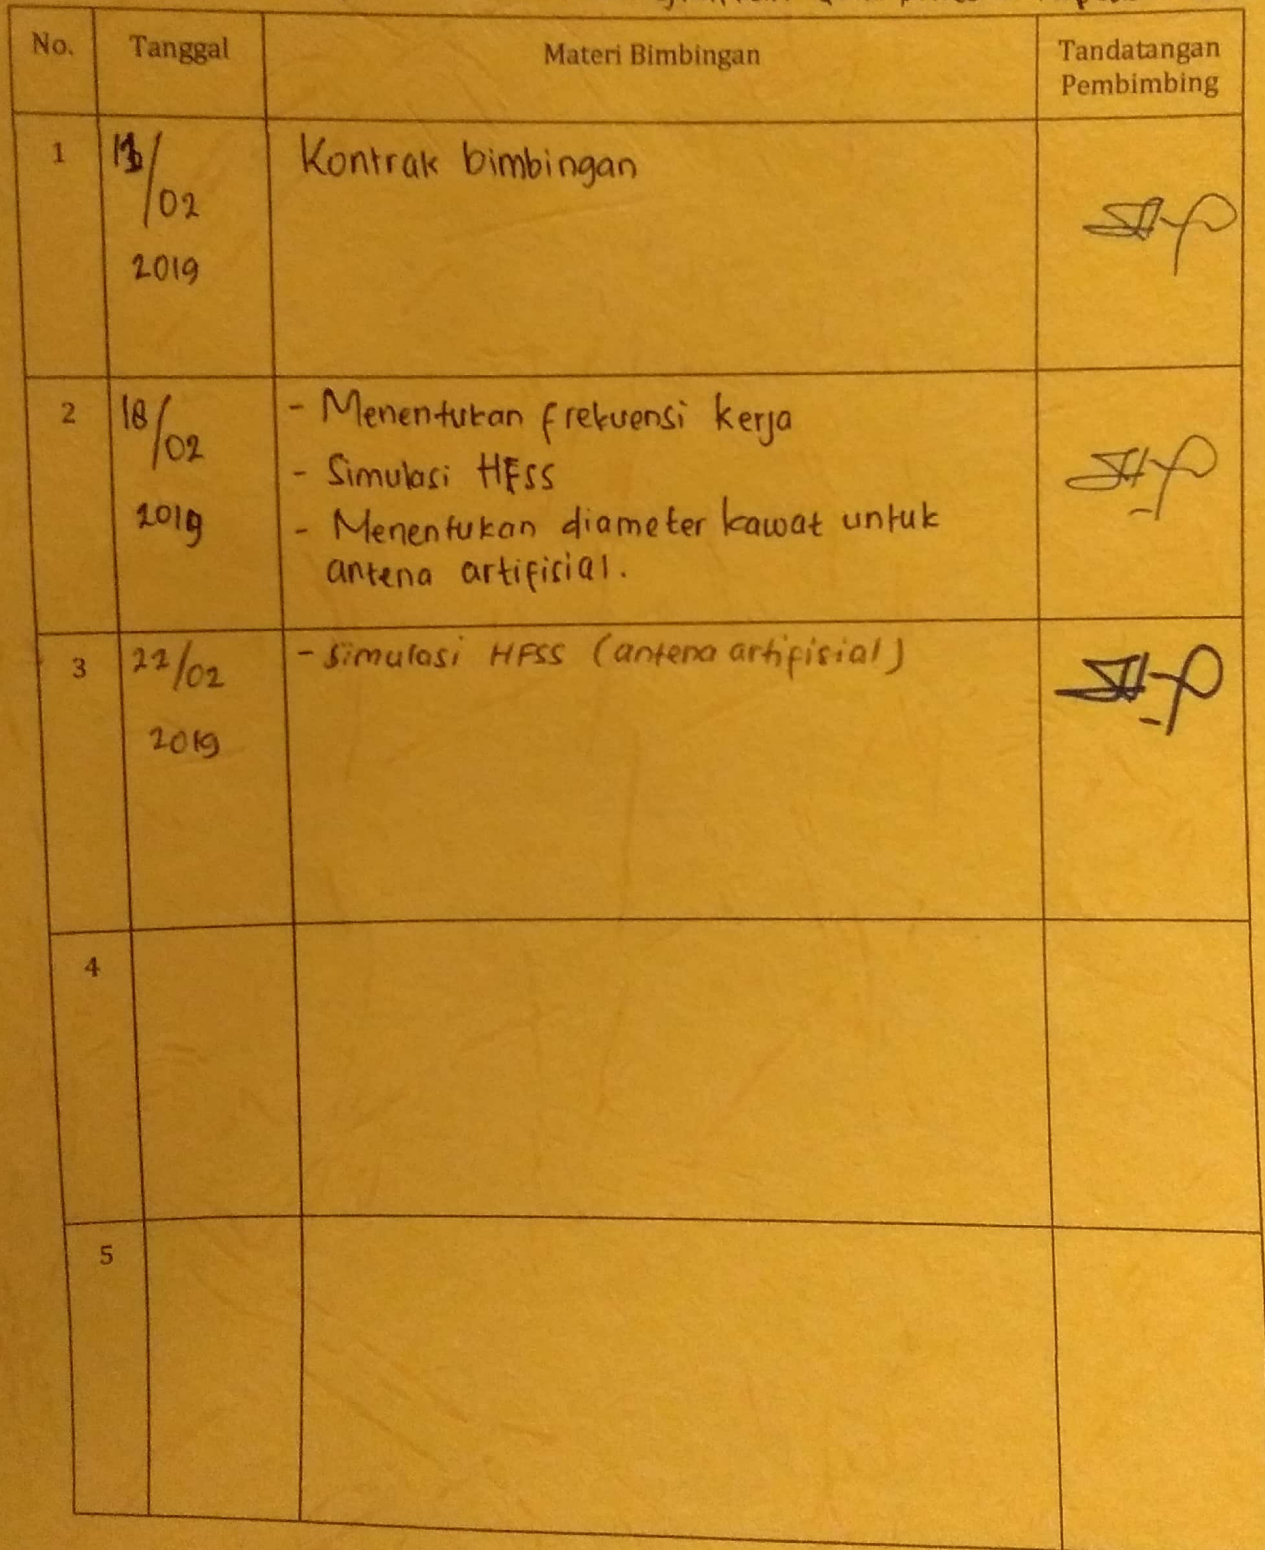 No. Tanggal Materi Bimbingan Tandatangan
Pembimbing
1 13/02 Kontrak bimbingan
2019
2 18/02 - Menentukan frekuensi kerja
- Simulasi HFSS
2019 - Menentukan diameter kawat untuk
antena artifisial.
3 22/02 - Simulasi HFSS (antena artifisial)
2019
4
5